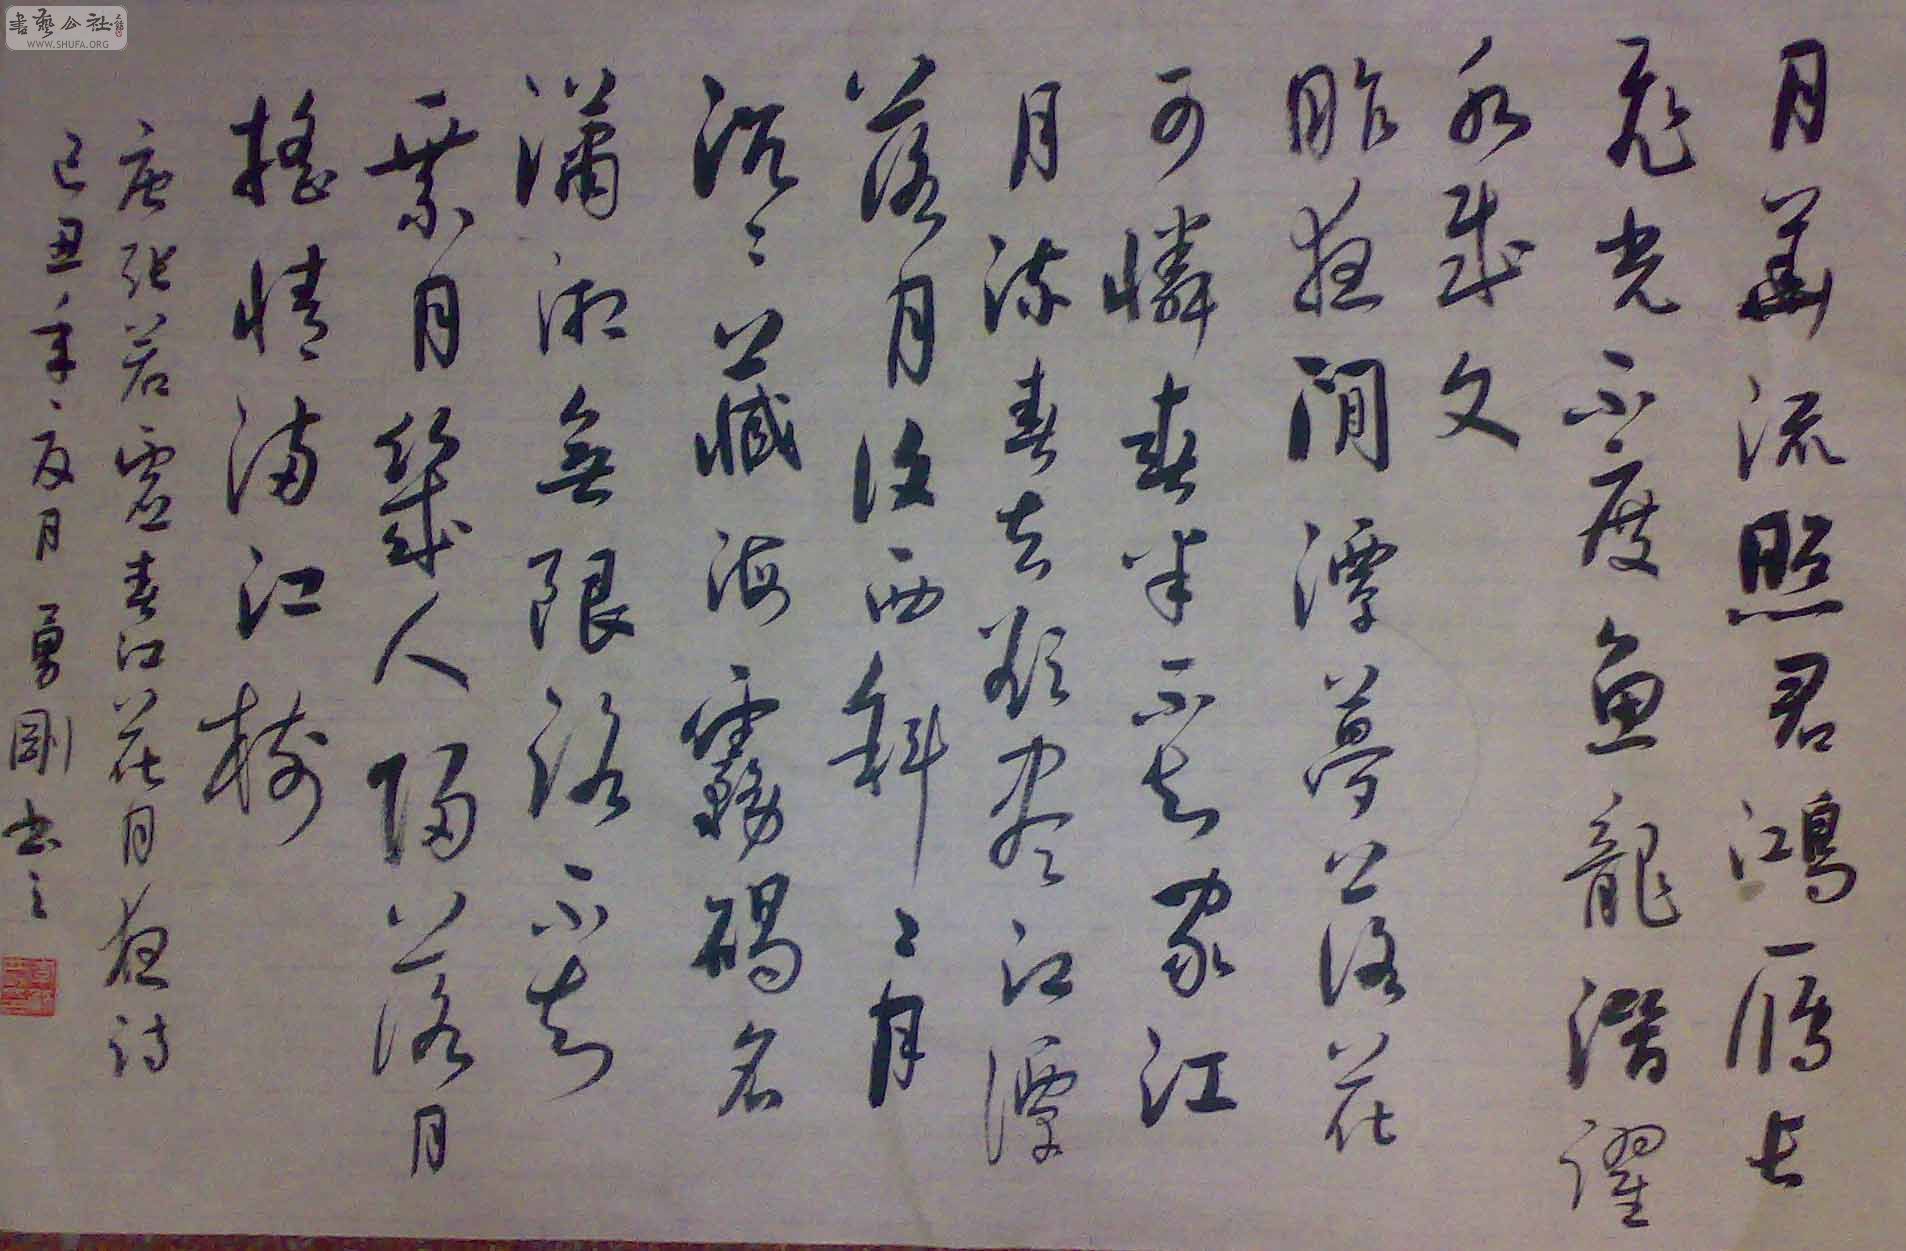 月華流照君鴻雁長
飛光不度鱼龍潜躍
水成文
昨夜閒潭夢落花
可憐春半不還家江
月流春去欲尽江潭
落月復西斜〻月
沉〻藏海霧碣石
瀟湘無限路不知
乘月幾人歸落月
搖情满江樹
唐張若虛春江花月夜詩
己丑年夏月勇剛书之
書藝公社
WWW.SHUFA.ORG